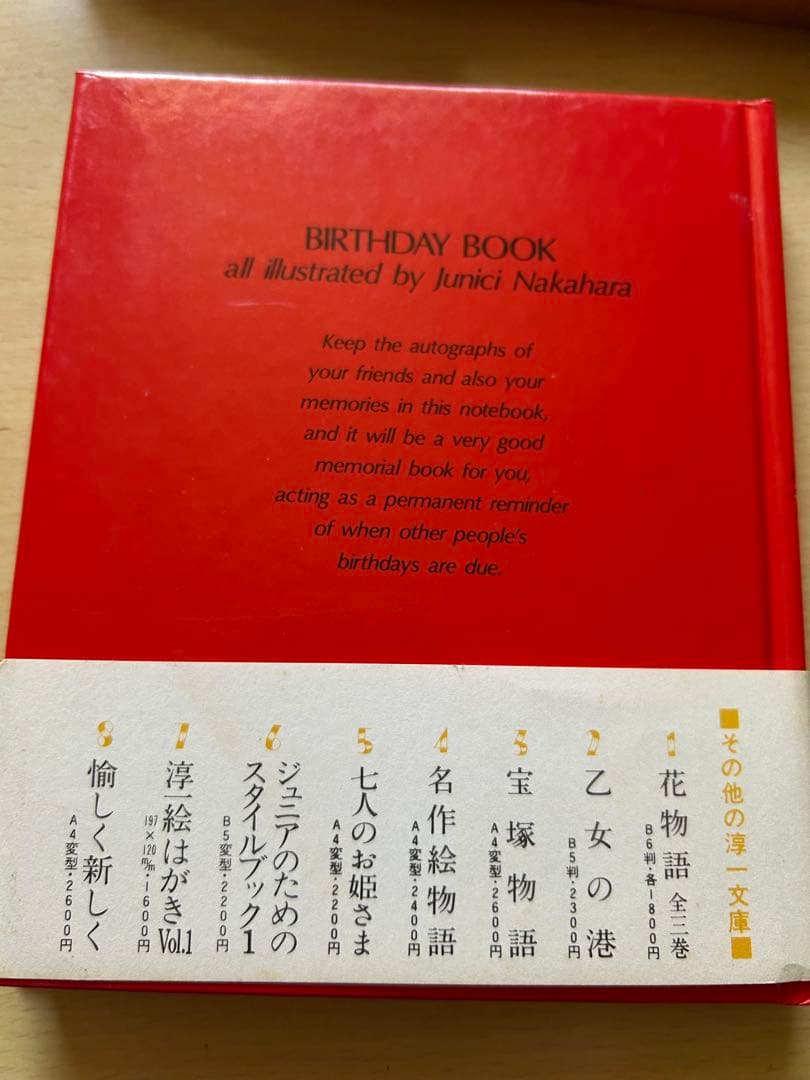 BIRTHDAY BOOK
all illustrated by Junici Nakahara
Keep the autographs of
your friends and also your
memories in this notebook,
and it will be a very good
memorial book for you,
acting as a permanent reminder
of when other people's
birthdays are due.
■その他の淳一文庫■
1 花物語 全三巻
B6判・各1800円
2 乙女の港
B5判・2300円
3 宝塚物語
A4変型・2600円
4 名作絵物語
A4変型・2400円
5 七人のお姫さま
A4変型・2200円
6 ジュニアのための
スタイルブック1
B5変型・2200円
7 淳一絵はがき Vol.1
197×120m/m・1600円
8 愉しく新しく
A4変型・2600円